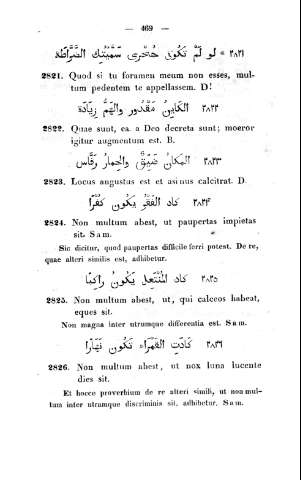 — 469 —
٢٨٢١ * لو لَمْ تَكُونِي حُجْرِي سَمَّيْتُكِ الضَّرَّاطَةَ
2821. Quod si tu foramen meum non esses, mul-
tum pedentem te appellassem. D!
٢٨٢٢ الكَائِنُ مَقْدُورٌ والهَمُّ زِيَادَةٌ
2822. Quae sunt, ea a Deo decreta sunt; moeror
igitur augmentum est. B.
٢٨٢٣ المَكَانُ ضَيِّقٌ والحِمارُ رَفَّاسٌ
2823. Locus augustus est et asinus calcitrat. D.
٢٨٢٤ كَادَ الفَقْرُ يَكُونُ كُفْرًا
2824. Non multum abest, ut paupertas impietas
sit. Sam.
Sic dicitur, quod paupertas difficile ferri potest. De re,
quae alteri similis est, adhibetur.
٢٨٢٥ كَادَ المُنْتَعِلُ يَكُونُ رَاكِبًا
2825. Non multum abest, ut, qui calceos habeat,
eques sit.
Non magna inter utrumque differentia est. Sam.
٢٨٢٦ كَادَتِ القَمْرَاءُ تَكُونُ نَهَارًا
2826. Non multum abest, ut nox luna lucente
dies sit.
Et hocce proverbium de re alteri simili, ut non mul-
tum inter utrumque discriminis sit, adhibetur. Sam.